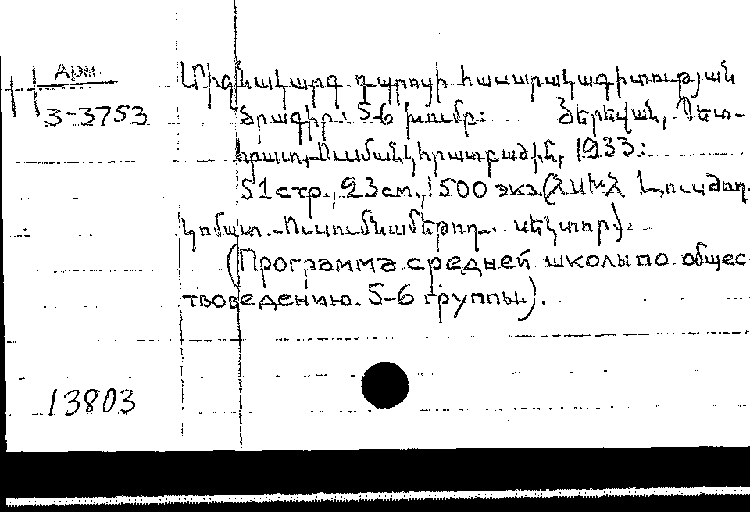 Арм. Միջնակարգ դպրոցի հասարակագիտության
3-3753 Ծրագիր: 5-6 խումբ: Յերեվան, Պետ-
հրատ, Ուսմանկհրատբաժին, 1933:
51 стр., 23 см., 1500 экз. (ՀՍԽՀ Լուսժող-
կոմատ. Ուսումնամեթոդ. սեկտոր):
(Программа средней школы по общес-
твоведению. 5-6 группы).
13803